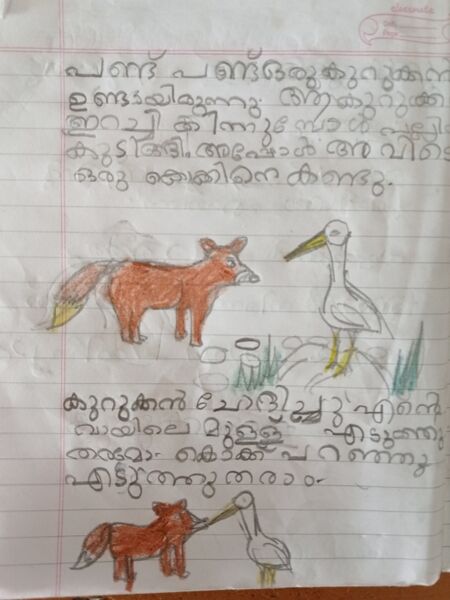 classmate
Date
Page
പണ്ട് പണ്ട് ഒരു കുറുക്കൻ
ഉണ്ടായിരുന്നു. ആ കുറുക്ക
ഇറച്ചി ക്കിന്നുമ്പോൾ
കുടിങ്ങി. അപ്പോൾ അവിടെ
ഒരു കൊക്കിനെ കണ്ടു.
കുറുക്കൻ ചോദിച്ചു എന്റെ
വായിലെ മുള്ള് എടുത്തു
തരുമോ. കൊക്ക് പറഞ്ഞു
എടുത്തുതരാം.